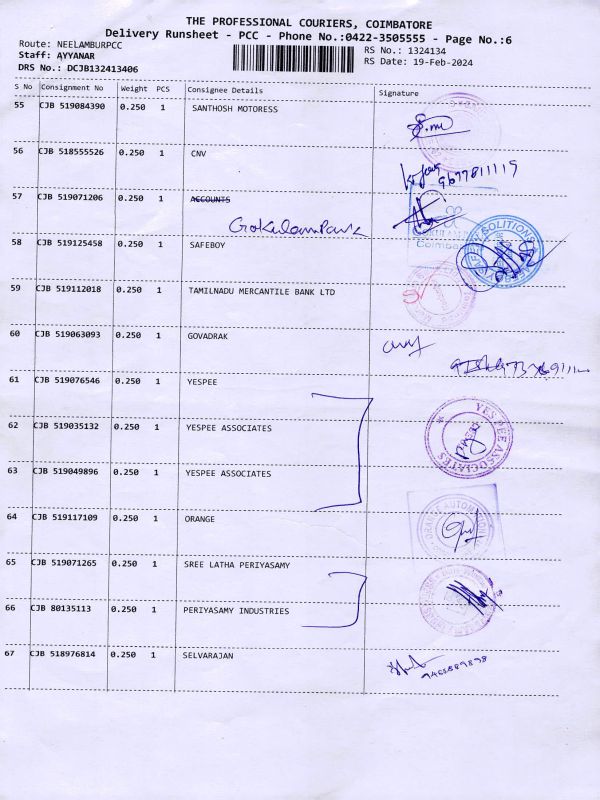 THE PROFESSIONAL COURIERS, COIMBATORE
Delivery Runsheet - PCC - Phone No.:0422-3505555 - Page No.:6
Route: NEELAMBURPCC
RS No.: 1324134
Staff: AYYANAR
RS Date: 19-Feb-2024
DRS No.: DCJB132413406
S No Consignment No Weight PCS Consignee Details Signature
55 CJB 519084390 0.250 1 SANTHOSH MOTORESS
56 CJB 518555526 0.250 1 CNV
9677811119
57 CJB 519071206 0.250 1 ACCOUNTS
GokulamPark
58 CJB 519125458 0.250 1 SAFEBOY
59 CJB 519112018 0.250 1 TAMILNADU MERCANTILE BANK LTD
60 CJB 519063093 0.250 1 GOVADRAK
61 CJB 519076546 0.250 1 YESPEE
62 CJB 519035132 0.250 1 YESPEE ASSOCIATES
YES PEE ASSOCIATES
63 CJB 519049896 0.250 1 YESPEE ASSOCIATES
64 CJB 519117109 0.250 1 ORANGE
65 CJB 519071265 0.250 1 SREE LATHA PERIYASAMY
66 CJB 80135113 0.250 1 PERIYASAMY INDUSTRIES
67 CJB 518976814 0.250 1 SELVARAJAN